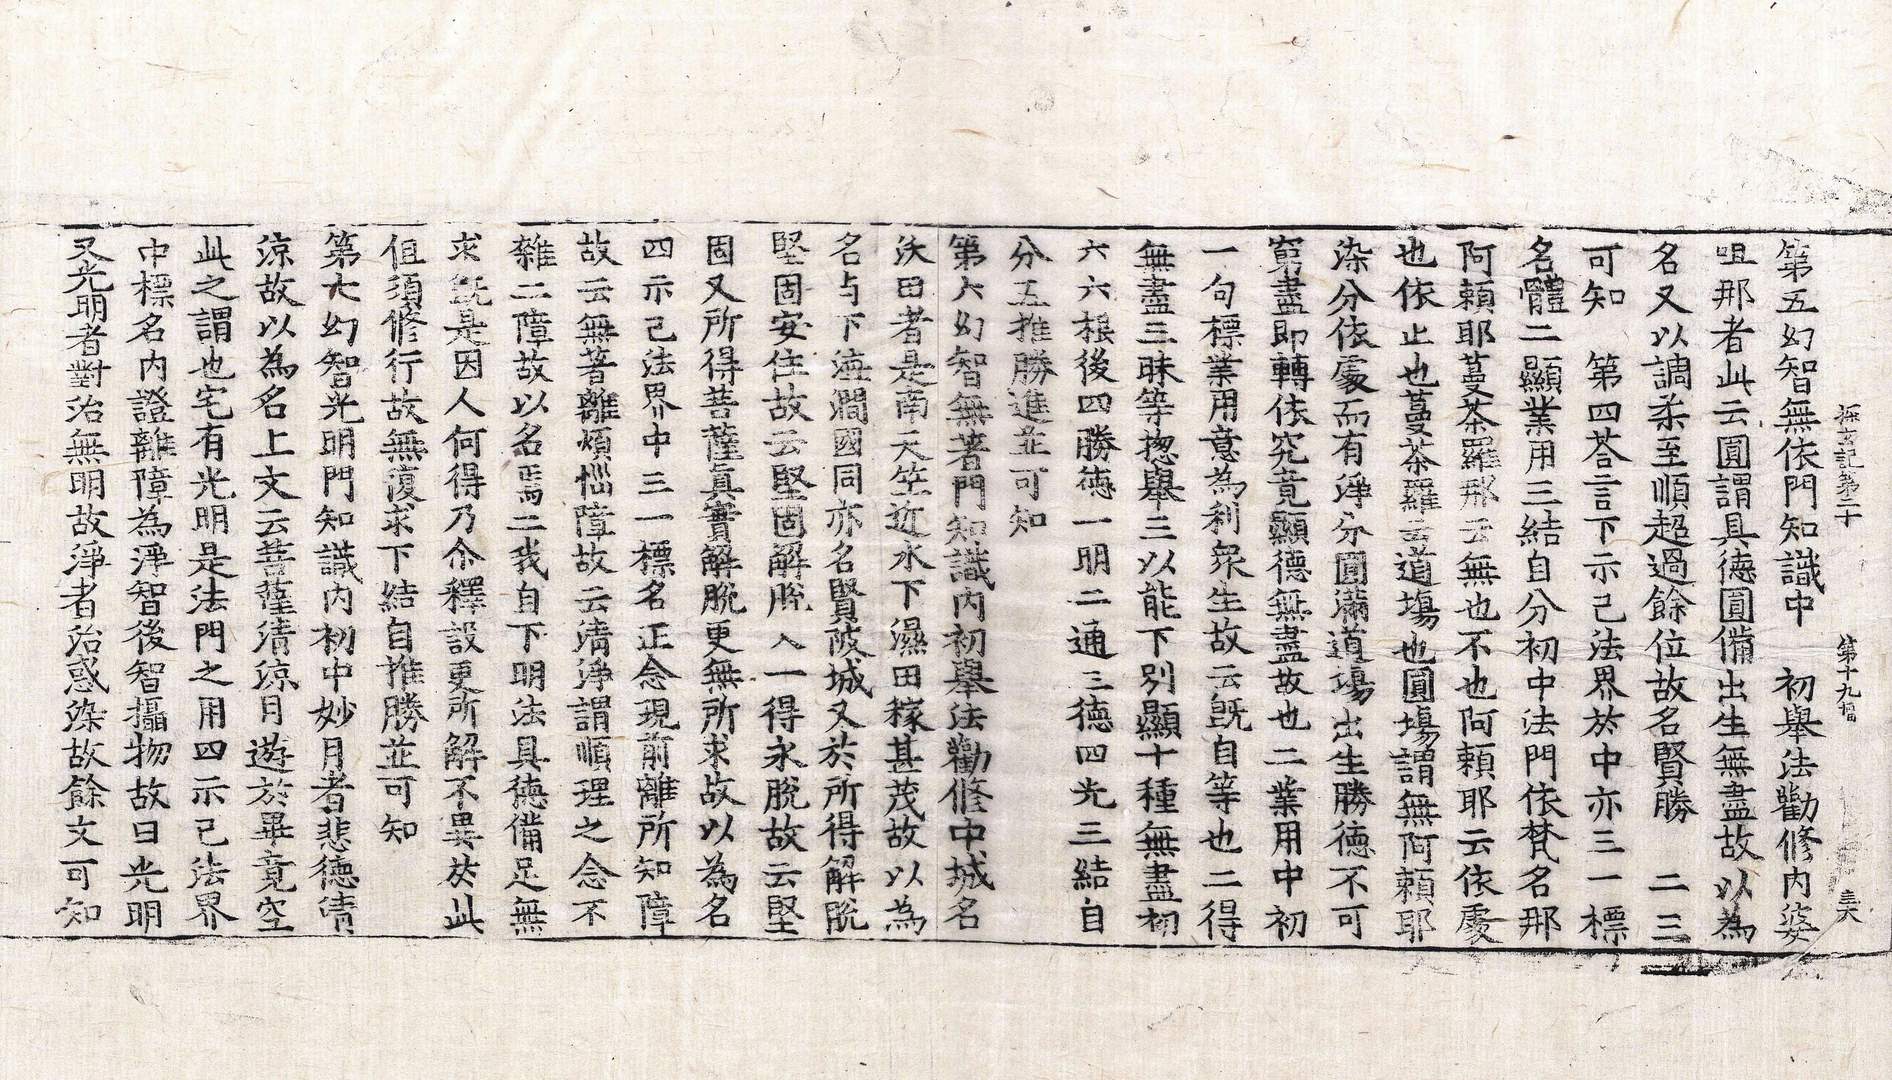 探玄記第二十　第十九幅
第五幻智無依門知識中　初舉法勸修内婆
咀那者此云圓謂具德圓備出生無盡故以為
名又以調柔至順超過餘位故名賢勝　二三
可知　第四荅言下示己法界於中亦三一標
名體二顯業用三結自分初中法門依梵名那
阿頼耶蔓荼羅那云無也不也阿頼耶云依處
也依止也蔓荼羅云道塲也圓塲謂無阿頼耶
染分依處而有淨分圓滿道塲出生勝德不可
窮盡即轉依究竟顯德無盡故也二業用中初
一句標業用意為利衆生故云旣自等也二得
無盡三昧等揔舉三以能下別顯十種無盡初
六六根後四勝德一明二通三德四光三結自
分五推勝進並可知
第六幻智無著門知識内初舉法勸修中城名
沃田者是南天竺近水下濕田稼甚茂故以為
名与下澁㵎國同亦名賢陂城又於所得解脫
堅固安住故云堅固解脫入一得永脫故云堅
固又所得菩薩真實解脫更無所求故以為名
四示己法界中三一標名正念現前離所知障
故云無著離煩惱障故云清淨謂順理之念不
雜二障故以名焉二我自下明法具德備足無
求旣是因人何得乃尒釋設更所解不異於此
但須修行故無復求下結自推勝並可知
第七幻智光明門知識内初中妙月者悲德清
涼故以為名上文云菩薩清涼月遊於畢竟空
此之謂也宅有光明是法門之用四示己法界
中標名内證離障為淨智後智攝物故曰光明
又光明者對治無明故淨者治惑染故餘文可知